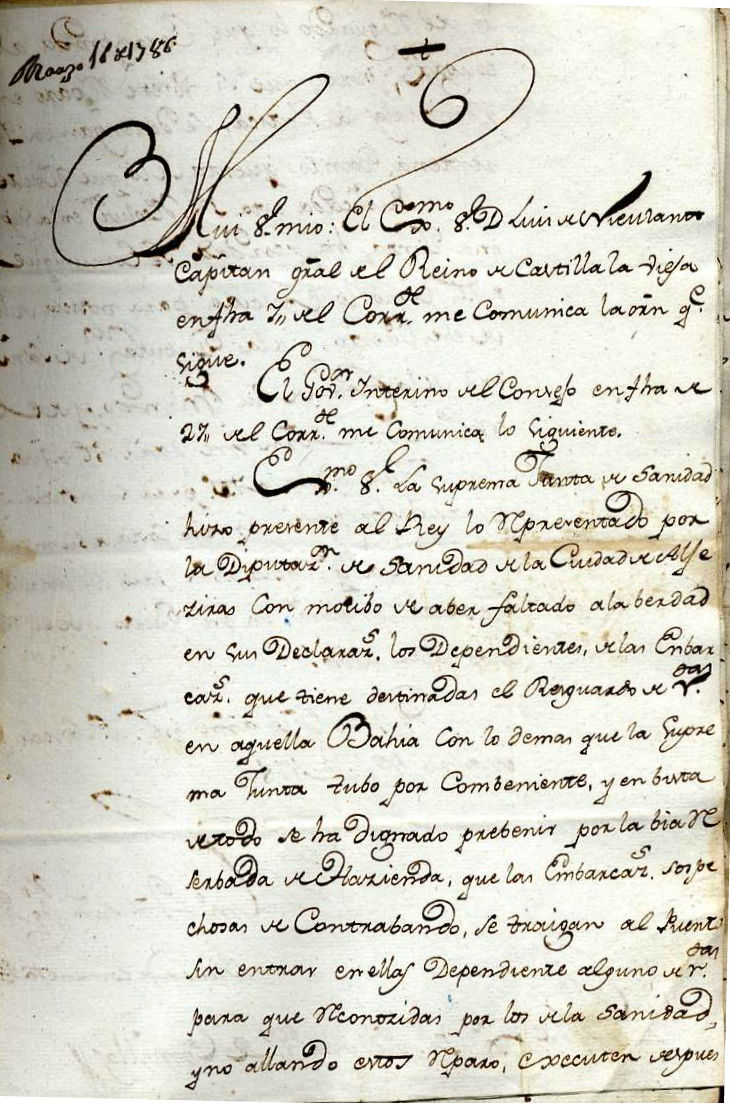 Marzo 16 de 1786
Mui Sr. mio: El Exmo. Sr. D Luis de
Capitan gral de el Reino de Castilla la vieja
en fha 7,, del Corrte. me Comunica la orn qe.
sigue.
El Govor. Interino de el Consejo en fha de
27,, de el Corrte. me Comunica lo siguiente.
Exmo. Sr. La Suprema Junta de Sanidad
hizo presente al Rey lo Representado por
la Diputazn. de Sanidad de la Ciudad de Alje
ziras Con motibo de aber faltado a la berdad
en sus Declarazs. los Dependientes, de las Enbar
cazs. que tiene destinadas el Resguardo de Rtas.
en aquella Bahia Con lo demas que la Supre
ma Junta tubo por Combeniente, y en bista
de todo se ha dignado prebenir por la bia Re
serbada de Hazienda, que las Embarcazs. sospe
chosas de Contrabando, se traigan al Puerto
sin entrar en ellas Dependiente alguno de rtas.
para que Reconozidas por los de la Sanidad,
y no allando estos Reparo, executen despues